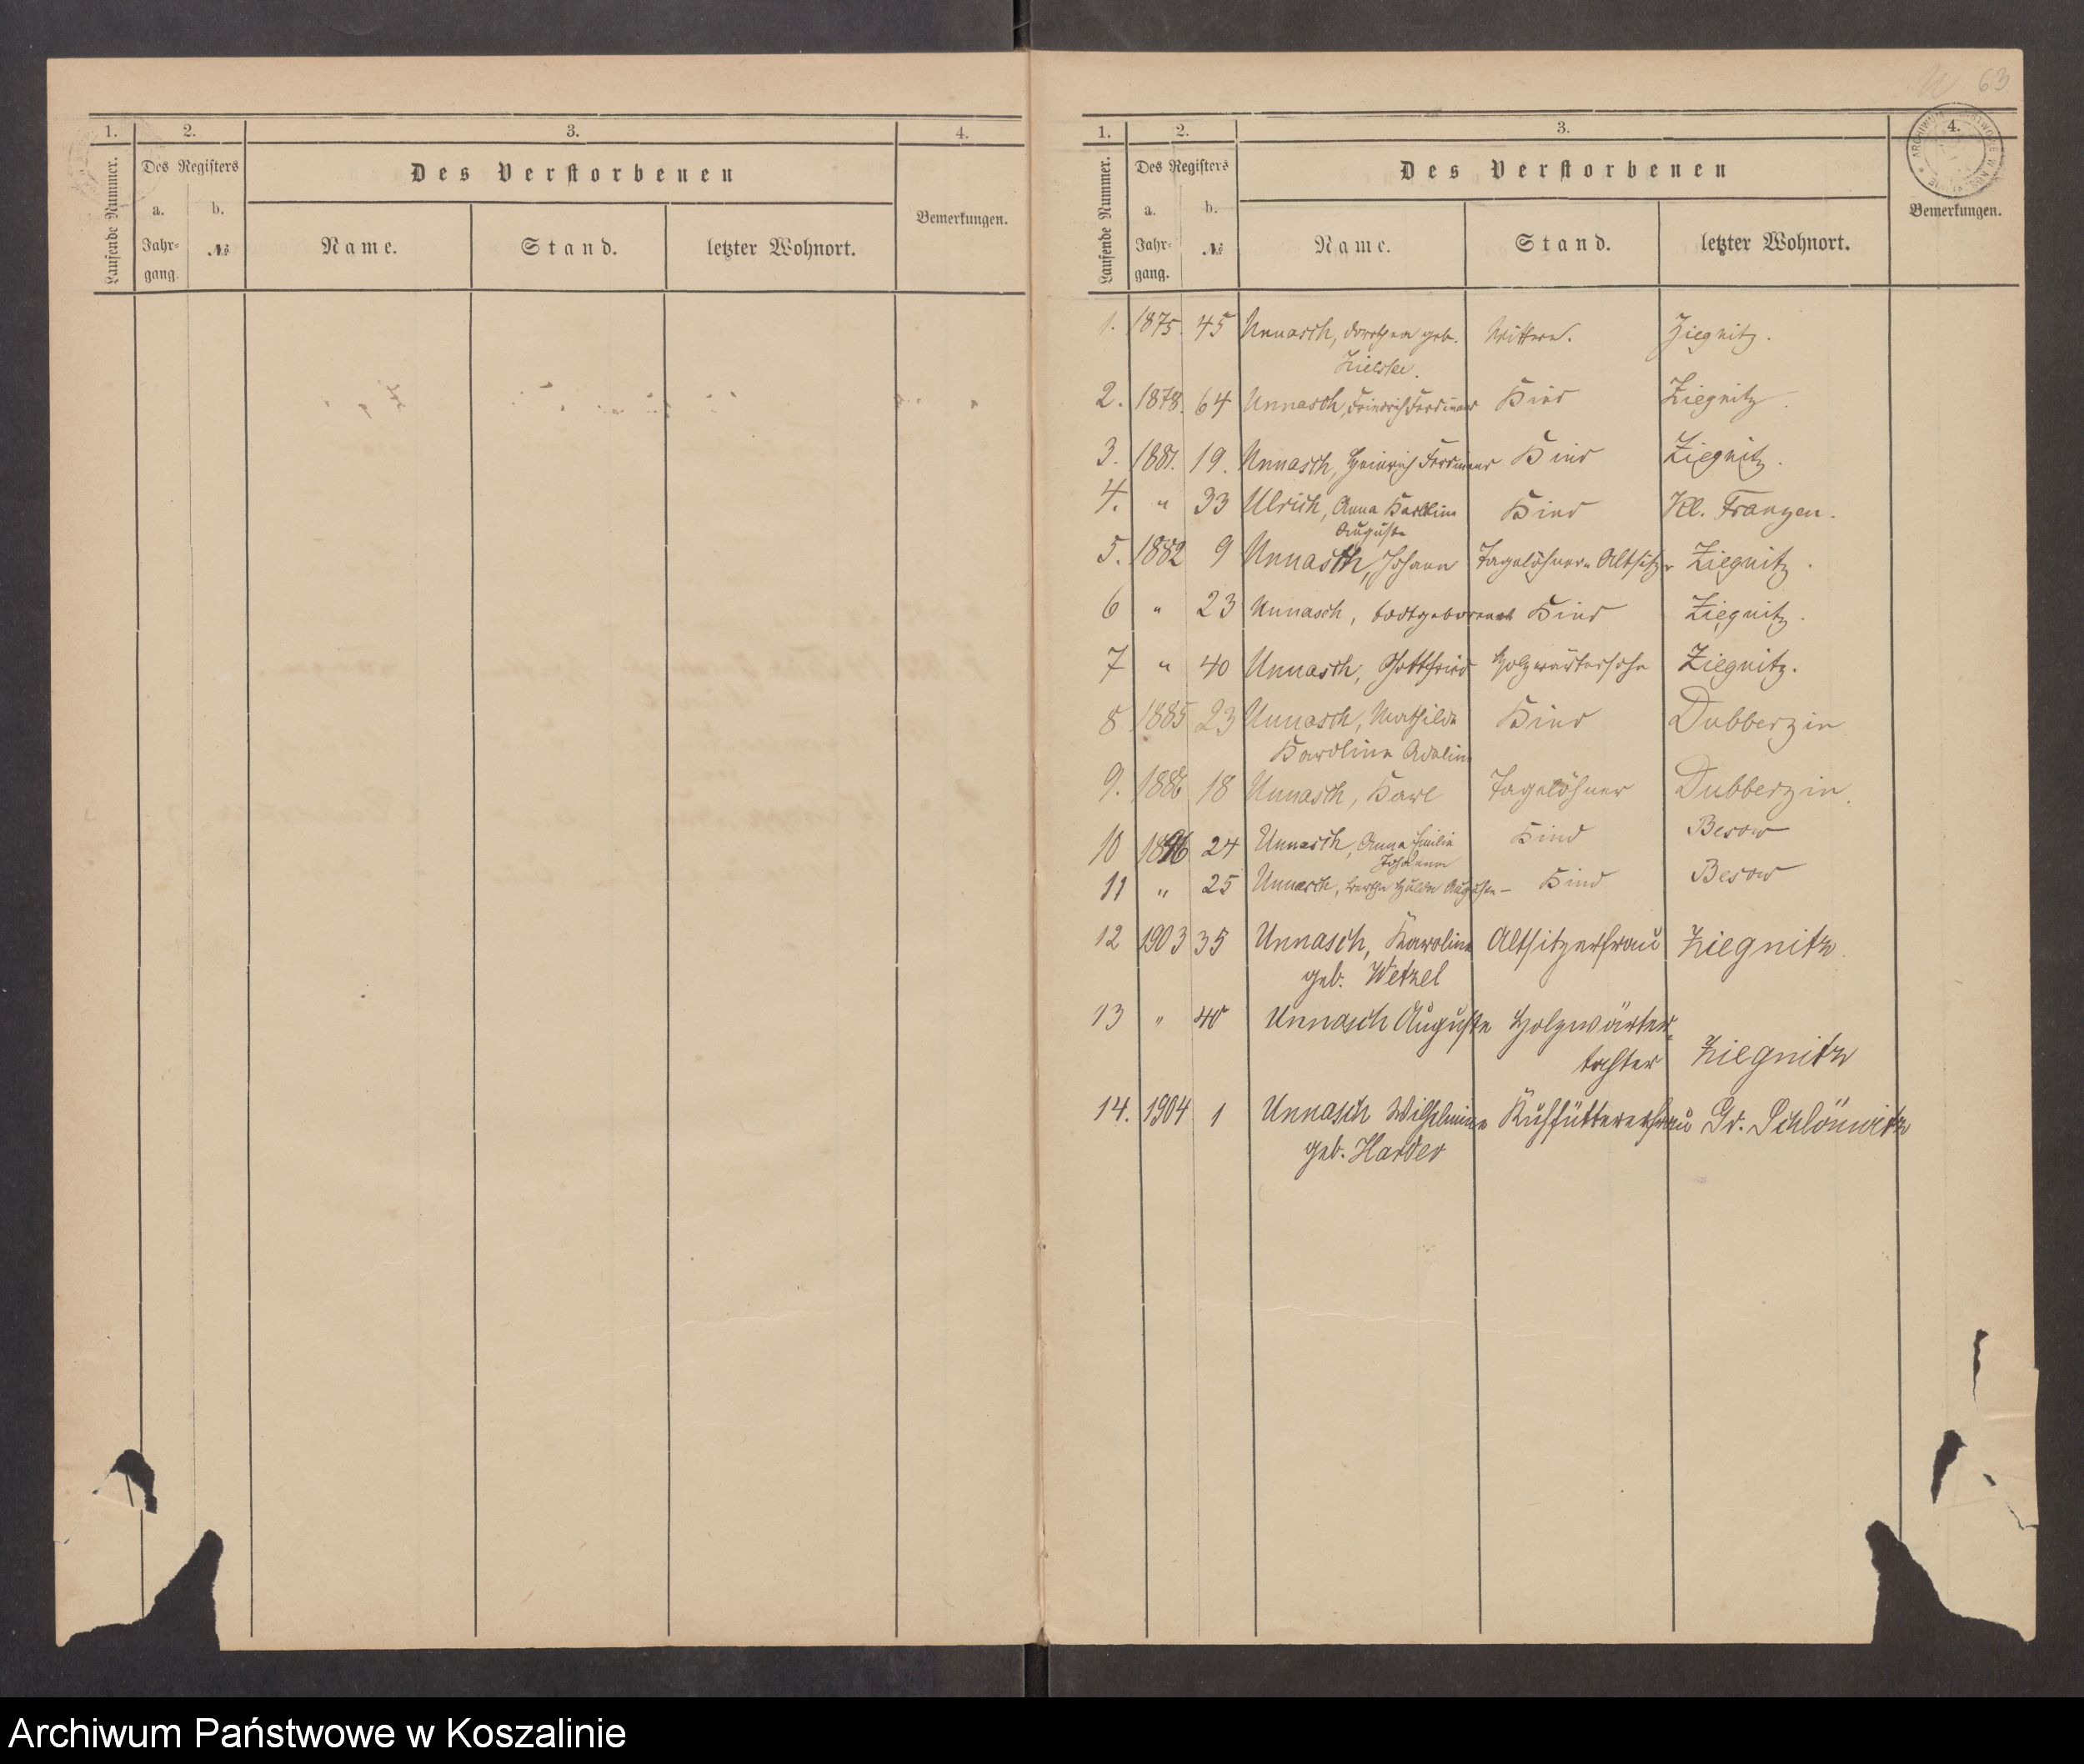 1. 2. 3. 4.
Laufende Nummer. Des Registers Des Verstorbenen Bemerkungen.
a. b.
Jahrgang. № Name. Stand. letzter Wohnort.
63
1. 2. 3. 4.
Laufende Nummer. Des Registers Des Verstorbenen Bemerkungen.
a. b.
Jahrgang. № Name. Stand. letzter Wohnort.
1. 1875. 45 Unnasch, Dorothea geb. Wittwe. Ziegnitz.
Zielske.
2. 1878. 64 Unnasch, Friedrich Ferdinand Kind Ziegnitz.
3. 1881. 19. Unnasch, Heinrich Ferdinand Kind Ziegnitz.
4. " 33 Ulrich, Anna Karoline Kind Kl. Franzen.
Auguste
5. 1882 9 Unnasch, Johann Tagelöhner u Altsitzer Ziegnitz.
6 " 23 Unnasch, todtgeborenes Kind Ziegnitz.
7 " 40 Unnasch, Gottfried Holzwärtersohn Ziegnitz.
8 1885 23 Unnasch, Mathilde Kind Dubberzin
Karoline Adeline
9. 1886 18 Unnasch, Karl Tagelöhner Dubberzin.
10 1896 24 Unnasch, Anna Emilie Kind Besow
Johanna
11 " 25 Unnasch, Bertha Hulda Auguste – Kind Besow
12 1903 35 Unnasch, Karoline Altsitzerfrau Ziegnitz.
geb. Wetzel
13 " 40 Unnasch Auguste Holzwärter-
tochter Ziegnitz
14. 1904 1 Unnasch Wilhelmine Kuhfüttererfrau Gr. Schlönwitz
geb. Harder
Archiwum Państwowe w Koszalinie